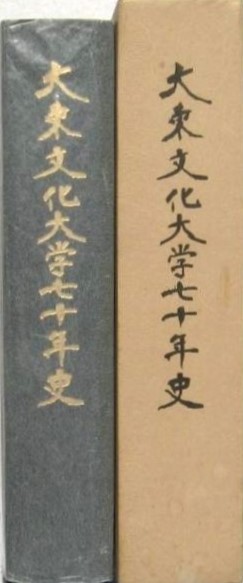 大東文化大学七十年史
大東文化大学七十年史